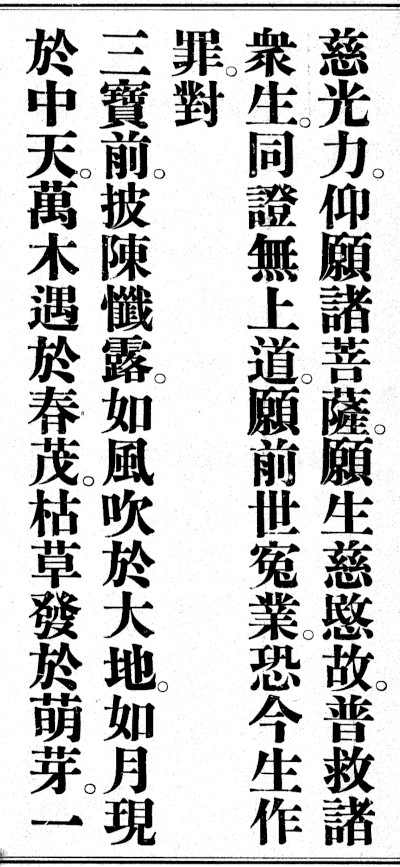 慈光力。仰願諸菩薩。願生慈愍故。普救諸
衆生。同證無上道。願前世寃業。恐今生作
罪。對
三寶前。披陳懺露。如風吹於大地。如月現
於中天。萬木遇於春茂。枯草發於萌芽。一